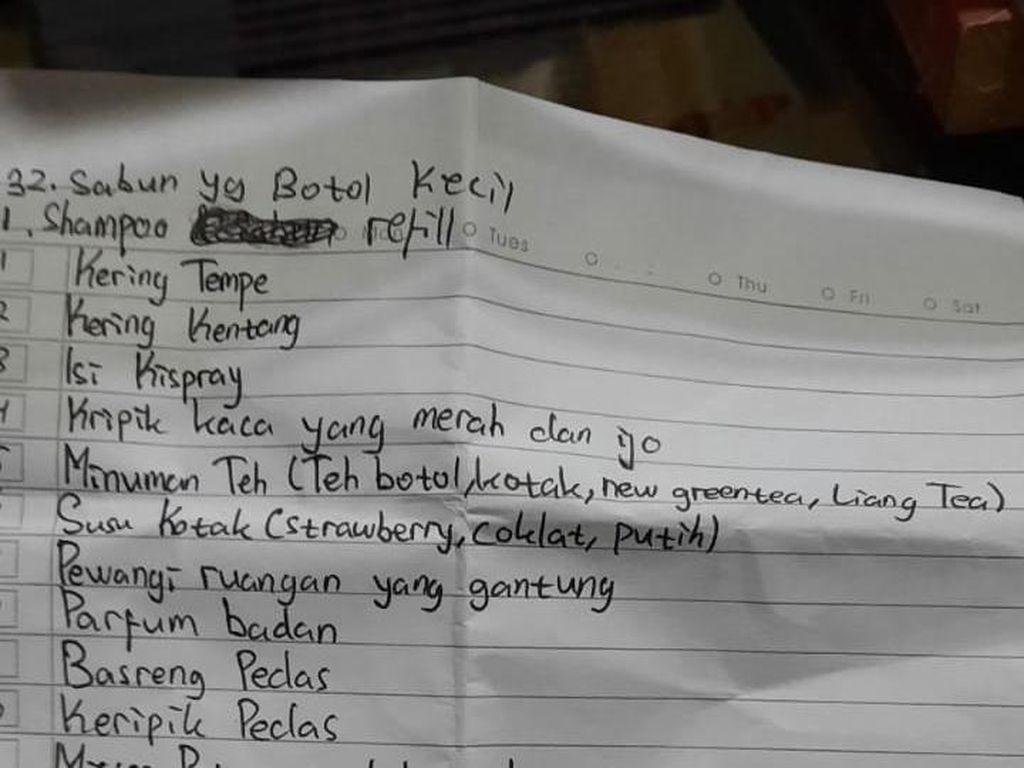 32. Sabun yg Botol Kecil
1. Shampoo refill
Tues Thu Fri Sat
1 Kering Tempe
2 Kering Kentang
3 Isi Kispray
4 Kripik kaca yang merah dan ijo
5 Minuman Teh (Teh botol, kotak, new greentea, Liang Tea)
Susu Kotak (strawberry, coklat, putih)
Pewangi ruangan yang gantung
Parfum badan
Basreng Pedas
Keripik Pedas